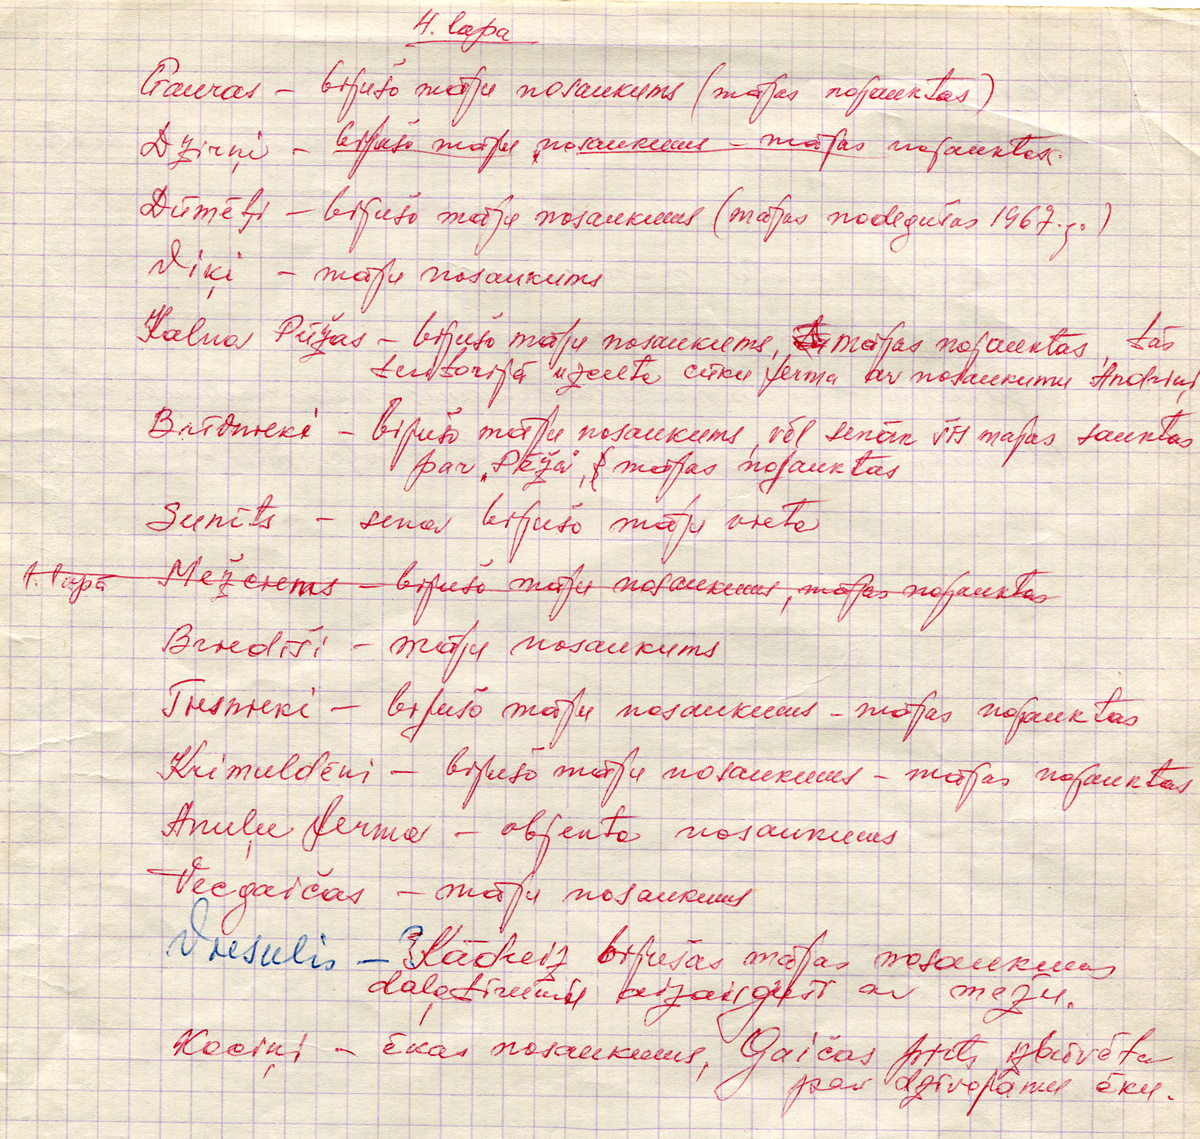 4. lapa
Gauras – bijušo māju nosaukums (mājas nojauktas)
Dzirņi – bijušo māju nosaukums – mājas nojauktas.
Dūmēļi – bijušo māju nosaukums (mājas nodegušas 1967. g.)
Viķi – māju nosaukums
Kalna Pūžas – bijušo māju nosaukums, mājas nojauktas, tās
teritorijā uzcelta cūku ferma ar nosaukumu Andriņi
Briednieki – bijušo māju nosaukums, vēl senāk šīs mājas sauktas
par „Pūža", mājas nojauktas
Sunīts – sena bijušo māju vieta
1. lapā Mežciems – bijušo māju nosaukums, mājas nojauktas
Briedīši – māju nosaukums
Tiesnieki – bijušo māju nosaukums – mājas nojauktas
Krimuldēni – bijušo māju nosaukums – mājas nojauktas
Anuļu ferma – objekta nosaukums
Vecgaičas – māju nosaukums
Viesulis – Kādreiz bijušas mājas nosaukums
daļa tīrumu aizauguši ar mežu.
Kociņi – ēkas nosaukums, Gaičas pirts izbūvēta
par dzīvojamu ēku.